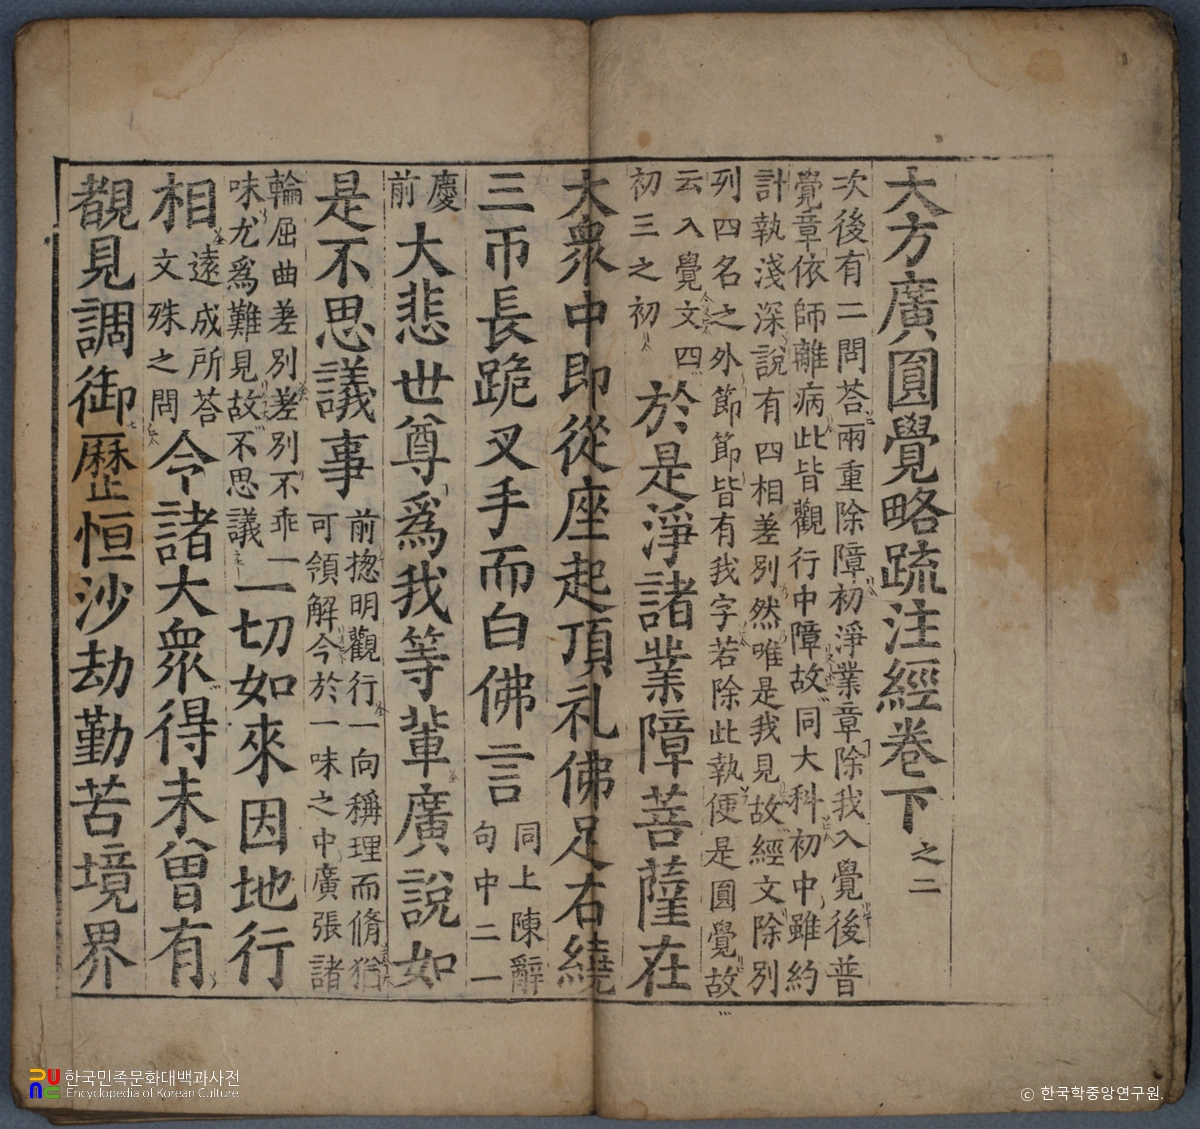 大方廣圓覺略䟽注經卷下之二
次後有二問荅兩重除障初淨業章除我入覺後普
覺章依師離病此皆觀行中障故同大科初中雖約
計執淺深說有四相差別然唯是我見故經文除別
列四名之外節節皆有我字若除此執便是圓覺故
云入覺文四
初三之初
於是淨諸業障菩薩在
大衆中即從座起頂礼佛足右繞
三帀長跪叉手而白佛言
同上陳辭
句中二一
慶
前
大悲世尊爲我等輩廣說如
是不思議事
前揔明觀行一向稱理而脩猶
可領解今於一味之中廣張諸
輪屈曲差別差別不乖一
味尤爲難見故不思議
一切如來因地行
相
遠成所荅
文殊之問
令諸大衆得未曾有
覩見調御歷恒沙劫勤苦境界
한국민족문화대백과사전
Encyclopedia of Korean Culture
ⓒ 한국학중앙연구원.